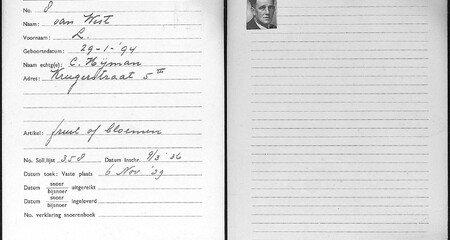 No. 8
Naam: van West
Voornaam: L.
Geboortedatum: 29-1-'94
Naam echtg(e): C. Hijman
Adres: Krugerstraat 5 II
Artikel: fruit of bloemen
No. Soll.lijst 358 Datum inschr. 9/3 '26
Datum toek: Vaste plaats 6 Nov '39
Datum snoer bijsnoer uitgereikt
Datum snoer bijsnoer ingeleverd
No. verklaring snoerenboek